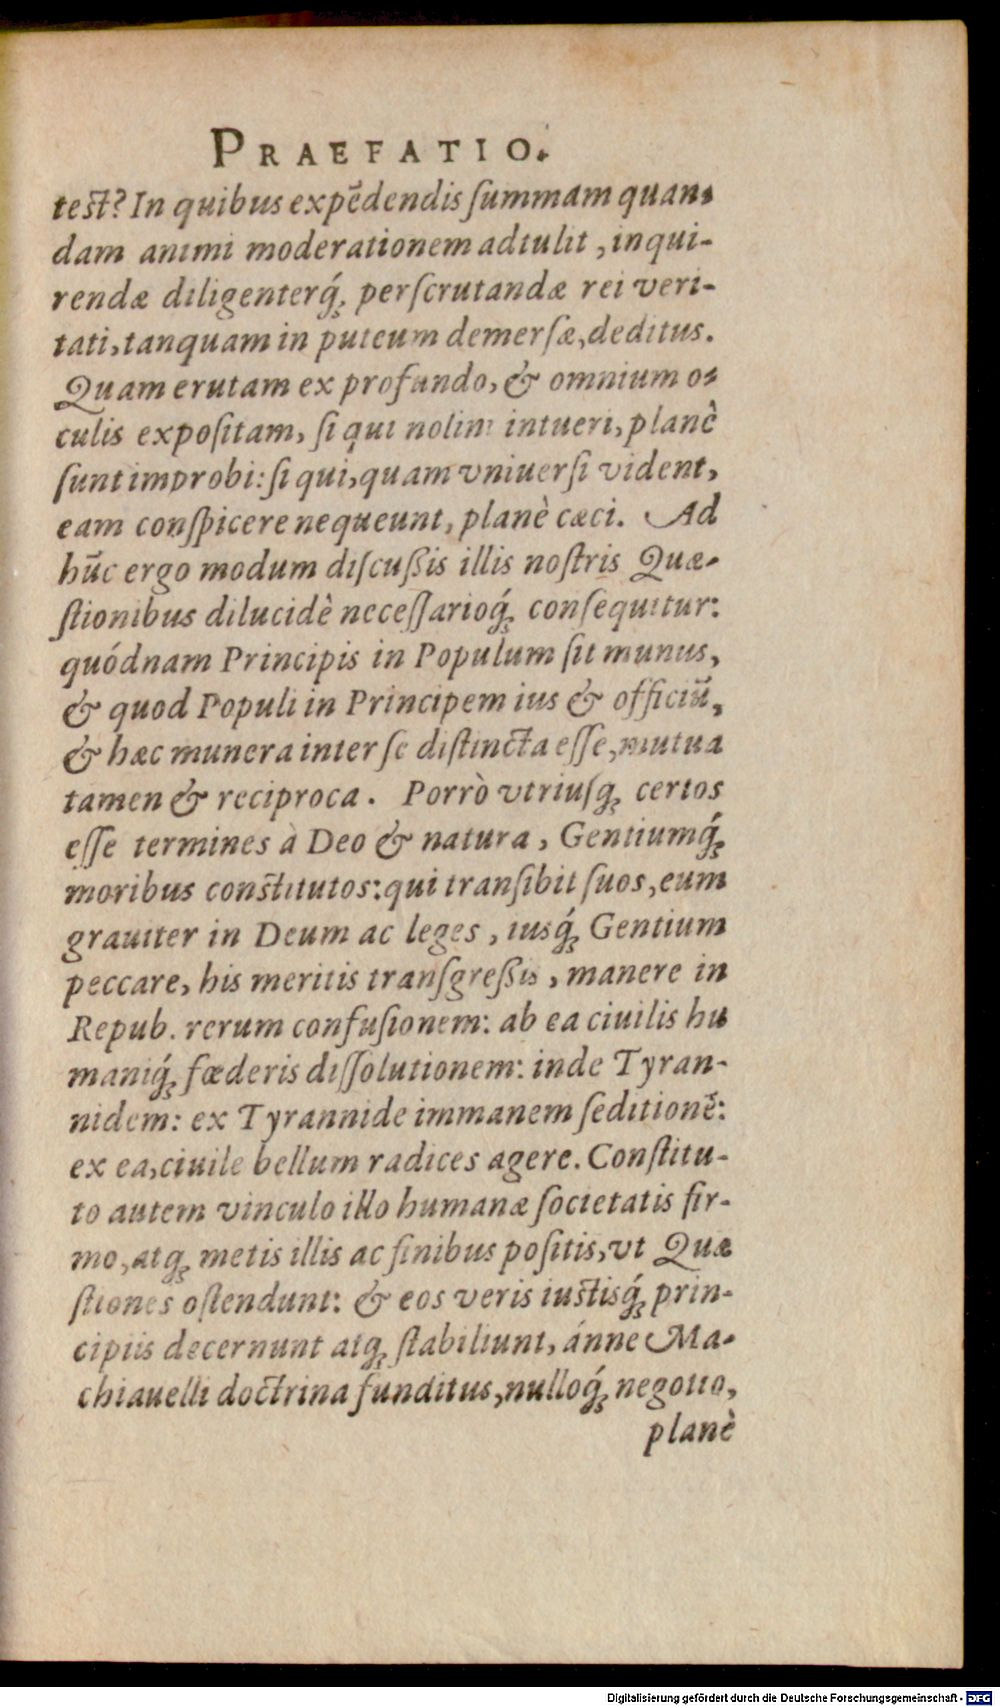 PRAEFATIO.
test? In quibus expēdendis ſummam quan-
dam animi moderationem adtulit, inqui-
rendæ diligenterq́; perſcrutandæ rei veri-
tati, tanquam in puteum demerſæ, deditus.
Quam erutam ex profundo, & omnium o-
culis expoſitam, ſi qui nolint intueri, planè
ſunt improbi: ſi qui, quam vniuerſi vident,
eam conſpicere nequeunt, planè cæci. Ad
hūc ergo modum diſcuſsis illis noſtris Quæ-
ſtionibus dilucidè neceſſarioq́; conſequitur:
quódnam Principis in Populum ſit munus,
& quod Populi in Principem ius & officiū,
& hæc munera inter ſe diſtincta eſſe, mutua
tamen & reciproca. Porrò vtriuſq; certos
eſſe termines à Deo & natura, Gentiumq́;
moribus constitutos: qui tranſibit ſuos, eum
grauiter in Deum ac leges, iusq́; Gentium
peccare, his meritis tranſgreſsis, manere in
Repub. rerum confuſionem: ab ea ciuilis hu
maniq́; fœderis diſſolutionem: inde Tyran-
nidem: ex Tyrannide immanem ſeditionē:
ex ea, ciuile bellum radices agere. Conſtitu-
to autem vinculo illo humanæ ſocietatis fir-
mo, atq; metis illis ac finibus poſitis, vt Quæ
ſtiones oſtendunt: & eos veris iustisq́; prin-
cipiis decernunt atq; ſtabiliunt, ánne Ma-
chiauelli doctrina funditus, nulloq́; negotio,
planè
Digitalisierung gefördert durch die Deutsche Forschungsgemeinschaft - DFG